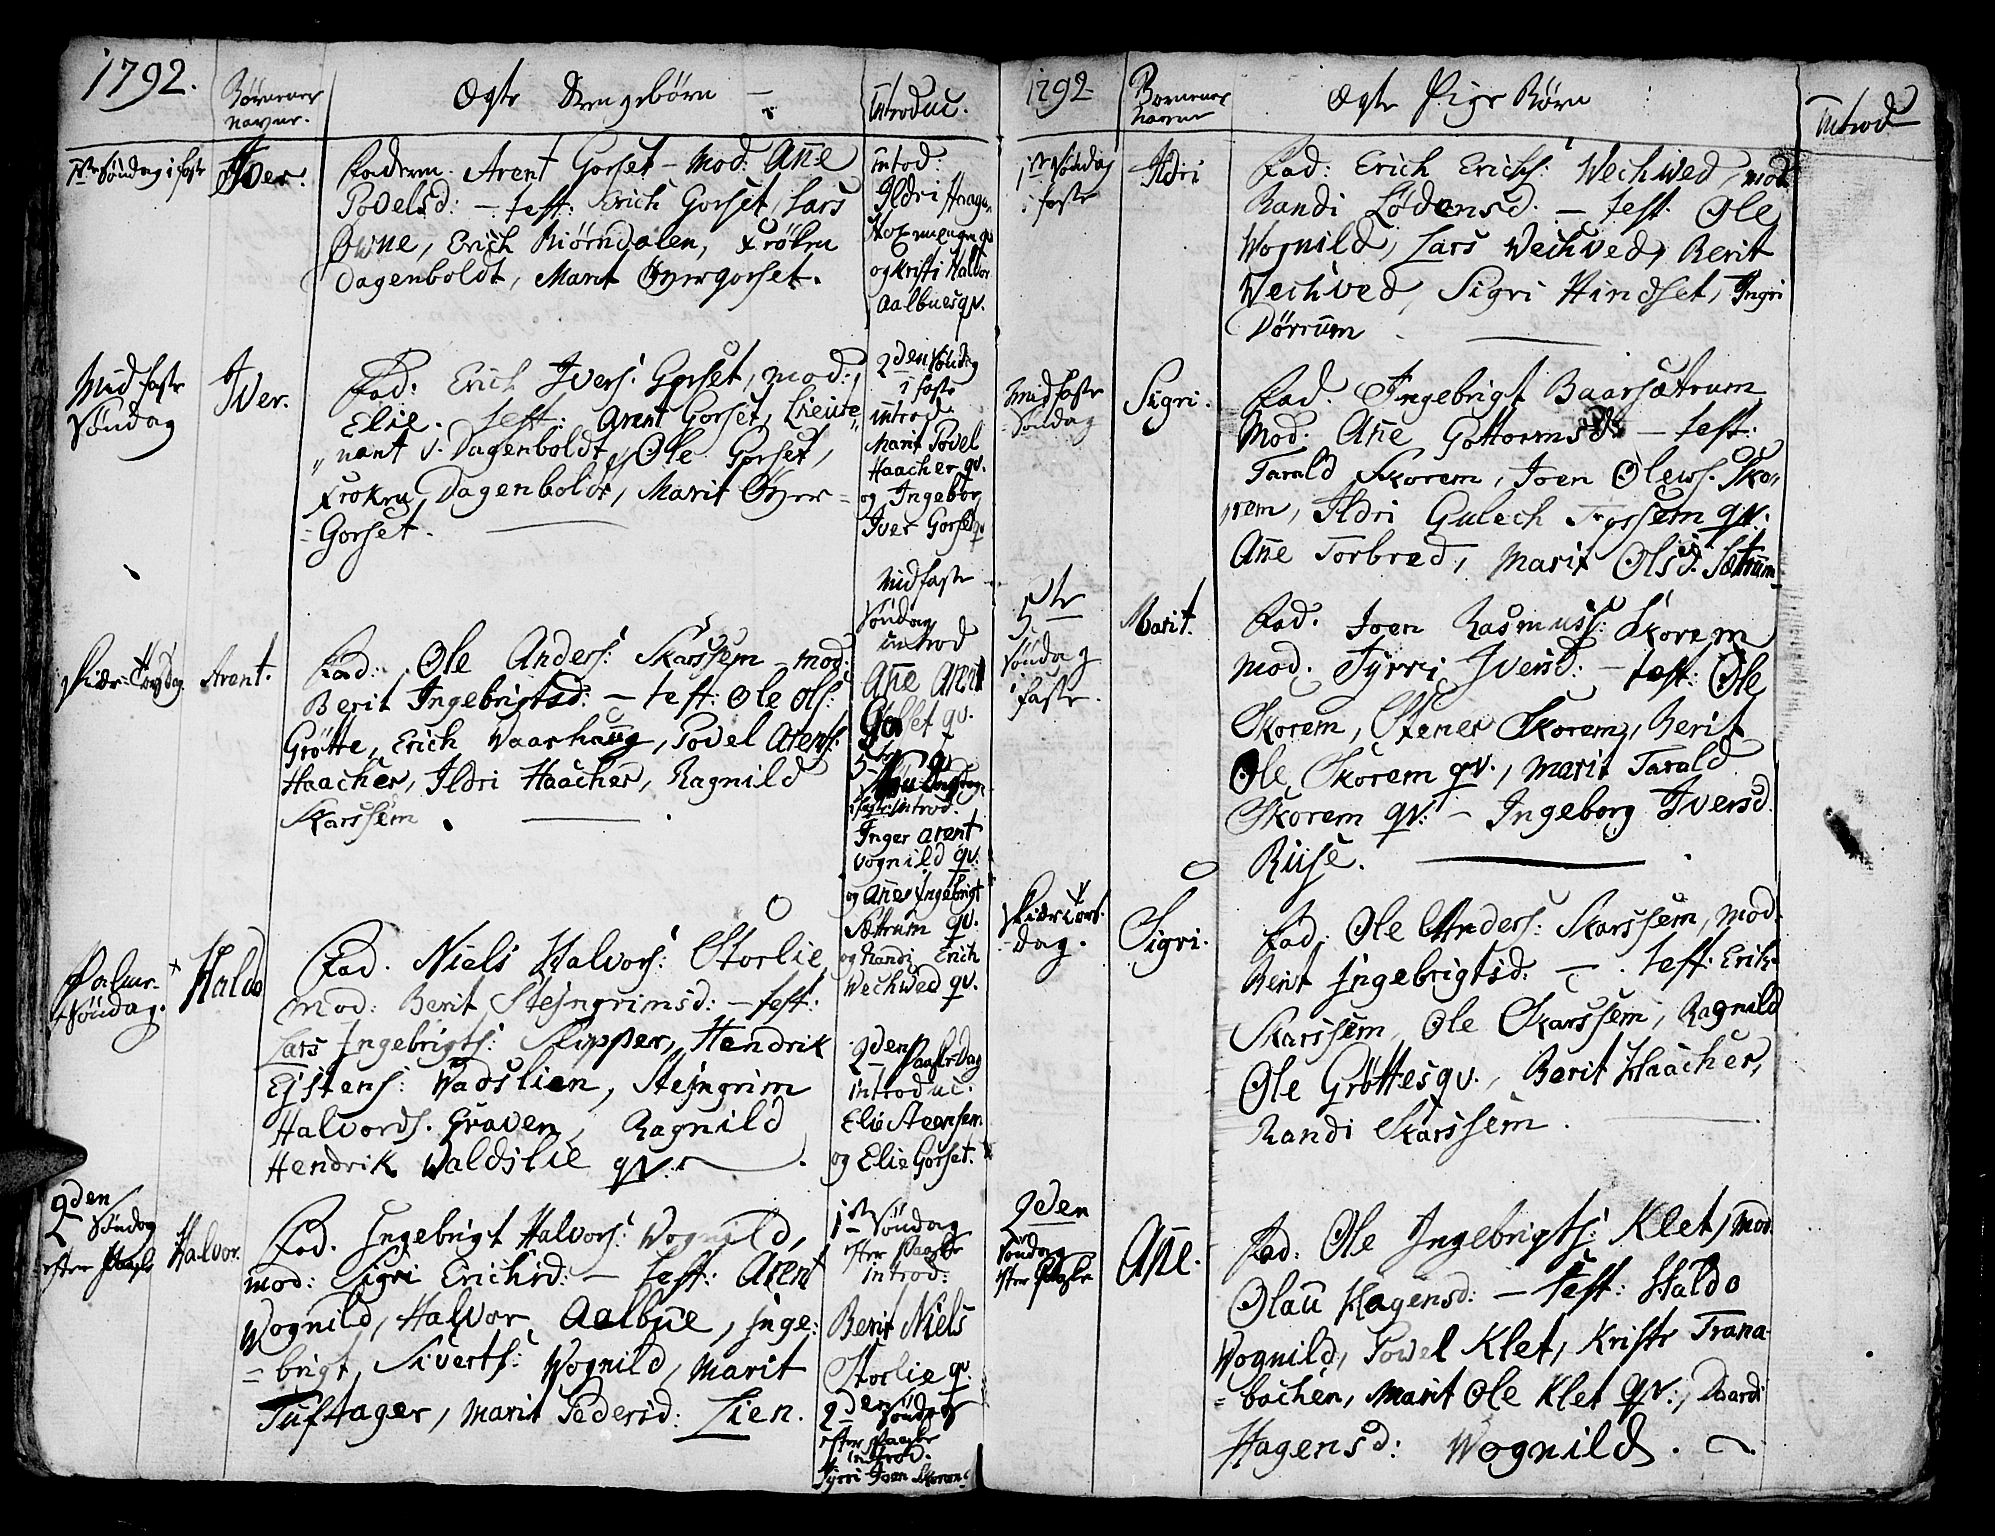 1792.
Børnenes
navne.
Ægte Drengebörn —
Introduc.
1ste Söndag i faste
Iver.
Faderen. Arent Gorset — Mod: Añe
Povelsd: — test: Erich Gorset, Lars
Öwne, Erich Biörndalen, Frökn
Dagenboldt, Marit Øvergorset.
introd:
Ildri Haagen
og Kristi Halvor
Aalbuesqv.
Midfaste
Söndag
Iver.
Fad: Erich Ivers: Gorset, mod:
Elie. test: Arent Gorset, Lieute„
„nant v. Dagenboldt, Ole Gorset,
Frökn Dagenboldt, Marit Över=
=Gorset.
2den Söndag
i faste
introd.
Marit Povel
Haacher qv.
og Ingebor
Iver Gorset qv
Skiær-Torsdag
Arent.
Fad: Ole Anders: Skarssem mod:
Berit Ingebrigtsd: — test: Ole Ols:
Grötte, Erich Vaarhaug, Povel Arens:
Haacher, Ildri Haacher, Ragnild
Skarssem
Midfaste
Söndag
introd
Añe Arent
Gorset qv.
5te Söndag
i faste introd.
Inger Arent
Vognild qv.
og Añe Ingebrigt
Sættrum qv.
og Randi Erich
Wechwed qv.
Palme-
Söndag.
Haldo
Fad. Niels Halvors: Storlie
Mod: Berit Stejngrimsd: — test:
Lars Ingebrigts: Skipper, Hendrik
Ejstens: Vadslien, Stejngrim
Halvords. Graven, Ragnild
Hendrik Waldslie qv:
2den Paaske Dag
introduc.
Elie Steensem
og Elie Gorset.
2den
Söndag
efter Paaske
Halvor.
Fad. Ingebrigt Halvors: Wognild,
mod: Sigri Erichsd: — test: Arent
Wognild, Halvor Aalbue, Inge:
=brigt Siverts: Wognild, Marit
Tuftager, Marit Pedersd: Lien.
1ste Söndag
efter Paaske
introd:
Berit Niels
Storlie qv.
2den Söndag
efter Paaske
introd.
Tyrri Joen Skorem
1792
Bornenes
navne
Ægte Pige Börn
Introd
1ste Söndag
i faste
Ildri
Fad: Erich Erichs: Wechwed, mod:
Randi Lödensd. — test. Ole
Wognild, Lars Wechved, Berit
Wechved, Sigri Hindset, Ingri
Dörrum
Midfaste
Söndag
Sigri.
Fad. Ingebrigt Baarsætrum
Mod. Añe Gottormsd — test:
Tarald Skorem, Joen Olens. Sko„
„rem, Ildri Gulech Fossem qv.
Añe Torbred, Marit Olsd. Sættrum
5te
Söndag
i faste.
Marit.
Fad. Joen Rasmuss: Skorem
Mod. Tyrri Iversd: — test: Ole
Skorem, Stener Skorem, Berit
Ole Skorem qv., Marit Tarald
Skorem qv: — Ingeborg Iversd.
Riise.
Skiær Tors-
dag.
Sigri.
Fad: Ole Anders: Skarssem, mod.
Berit Ingebrigtsd. — . test. Erik
Skarssem, Ole Skarssem, Ragnild
Ole Gröttesqv., Berit Haacher,
Randi Skarssem.
2den
Söndag
efter Paaske
Añe.
Fad: Ole Ingebrigts: Klet, Mod.
Olau Hagensd: — test: Haldo
Wognild, Powel Klet, Kristi Trana-
=bachen, Marit Ole Klet qv:, Baardi
Hagensd: Wognild.